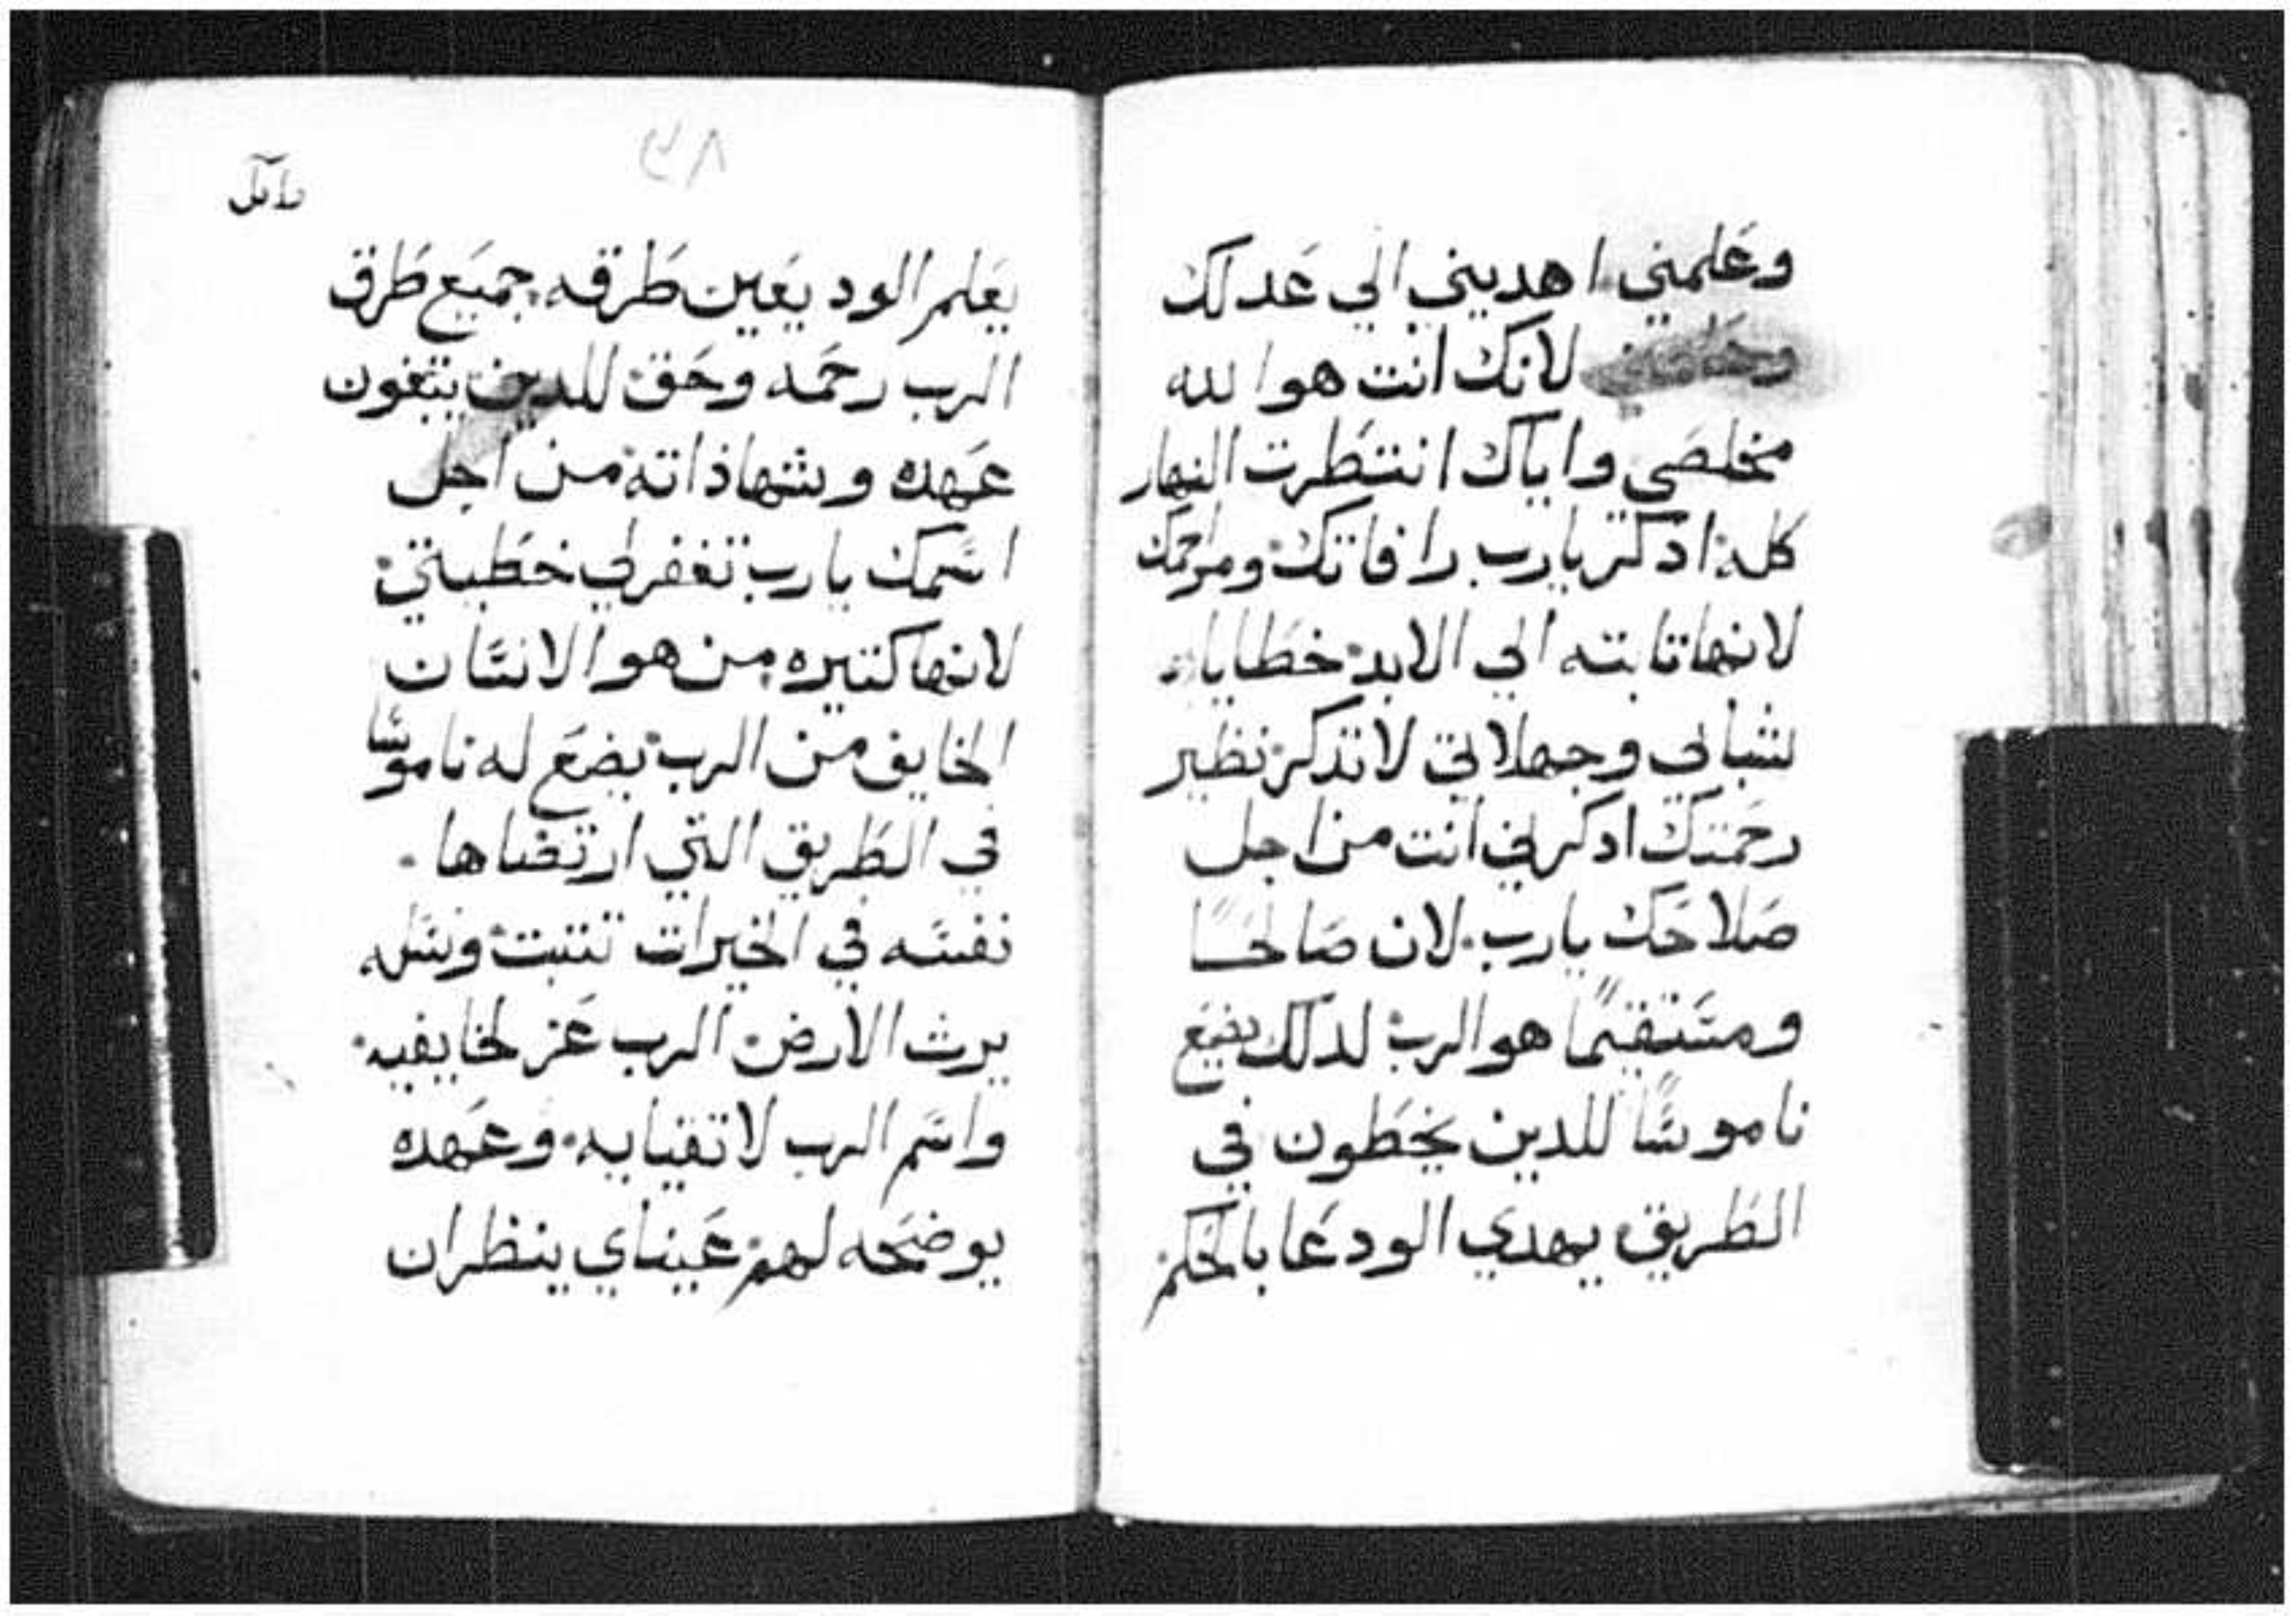 وعلمني اهديني الي عدلك
لانك انت هو الله
مخلصي واياك انتظرت النهار
كله ادكر يارب رافاتك ومراحمك
لانها تابته الي الابد خطايا
شبابي وجهلاتي لا تدكر نظير
رحمتك ادكرني انت من اجل
صلاحك يارب لان صالحًا
ومستقيمًا هو الرب لدلك يضع
ناموسًا للدين يخطون في
الطريق يهدي الودعا بالحكم
٢٨
يعلم الوديعين طرقه جميع طرق
الرب رحمه وحق للدين يبتغون
عهده وشهاذاته من اجل
اسمك يارب تغفر لي خطيتي
لانها كتيره من هو الانسان
الخايف من الرب يضع له ناموسًا
في الطريق التي ارتضاها
نفسه في الخيرات تتبت ونسله
يرث الارض الرب عز لخايفيه
واسم الرب لاتقيايه وعهده
يوضحه لهم عيناي ينظران